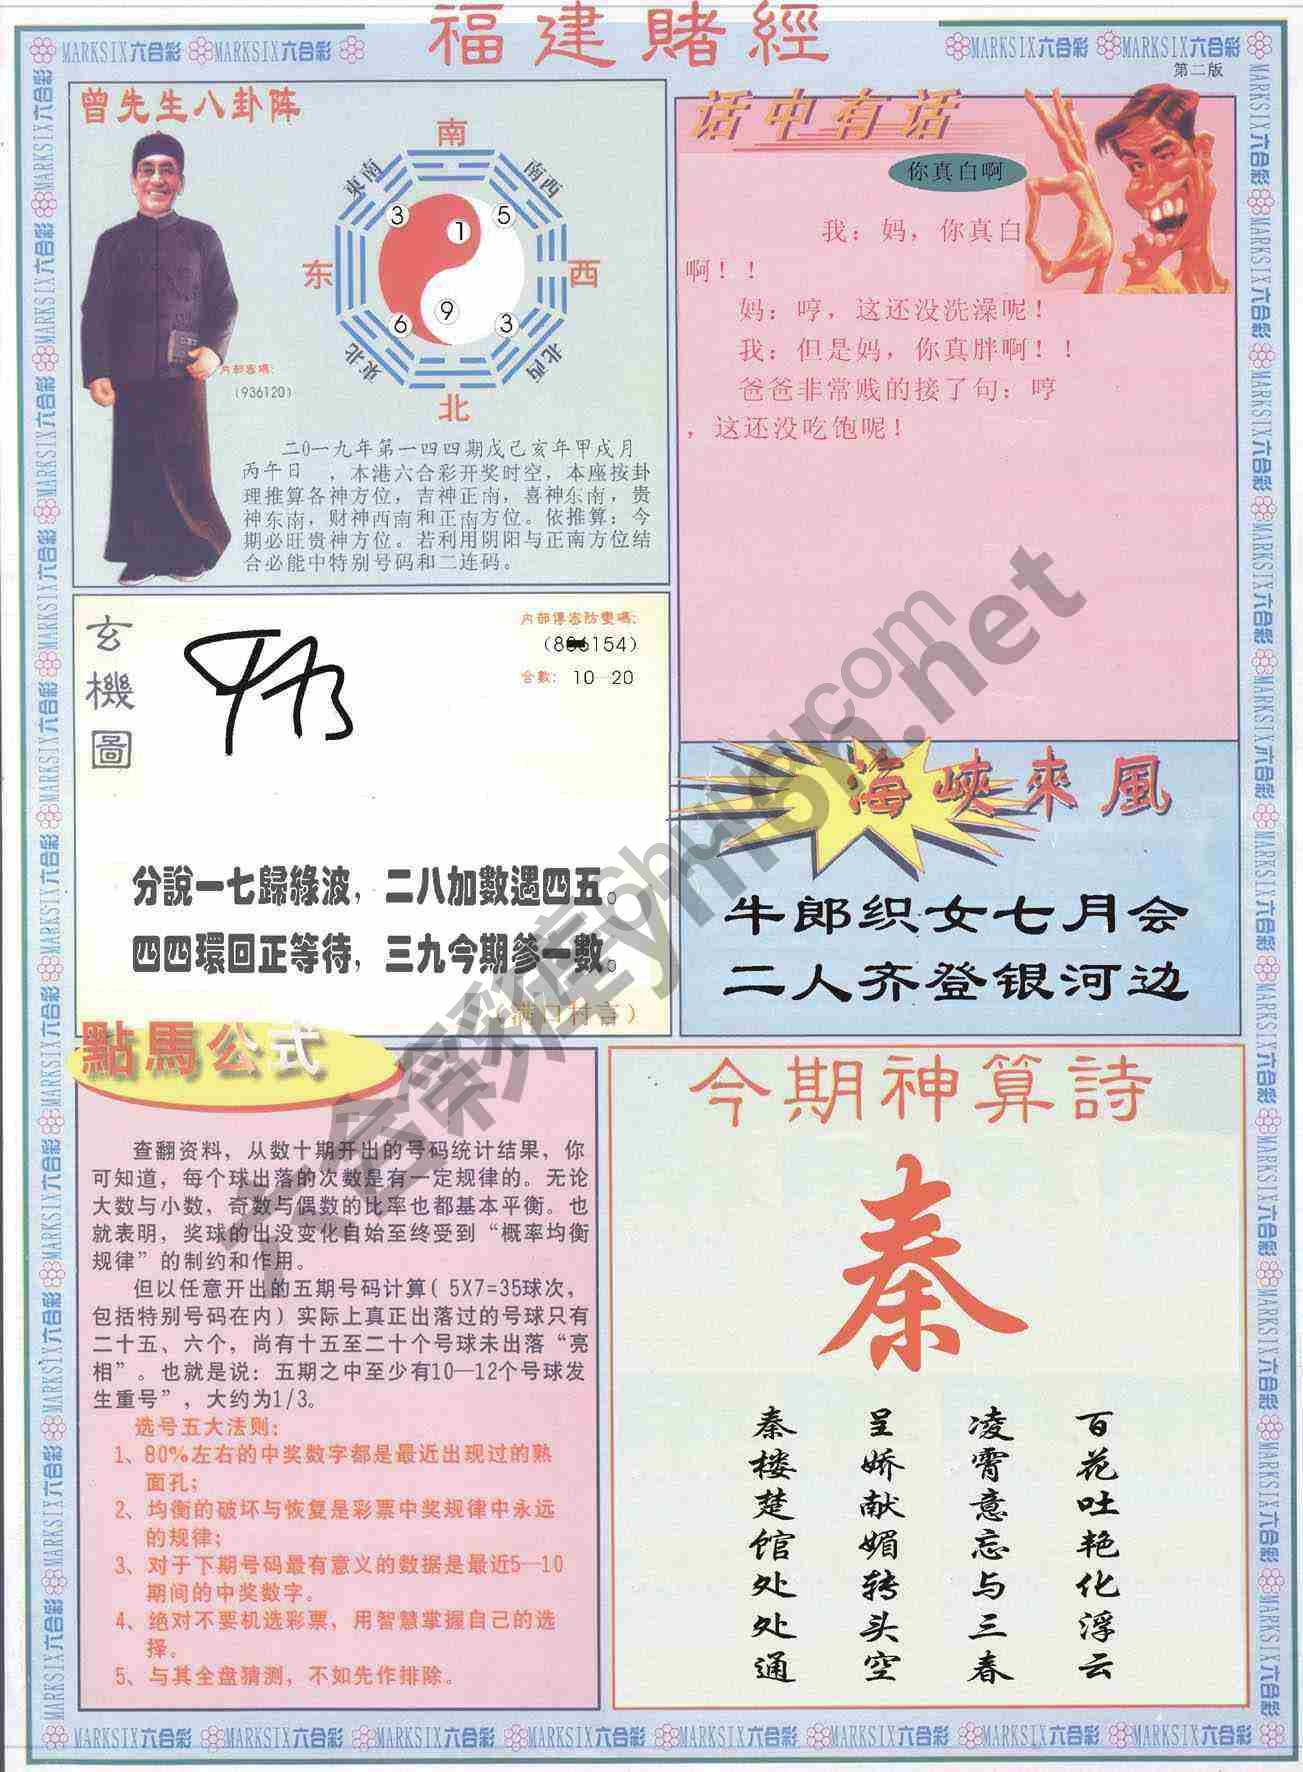 福建賭經
MARKSIX六合彩 MARKSIX六合彩
MARKSIX六合彩 MARKSIX六合彩
第二版
曾先生八卦阵
南
東南
南西
3
1
5
东
西
6
9
3
東北
北西
北
内部密碼:
(936120)
二0一九年第一四四期戊己亥年甲戌月
丙午日 ,本港六合彩开奖时空,本座按卦
理推算各神方位,吉神正南,喜神东南,贵
神东南,财神西南和正南方位。依推算:今
期必旺贵神方位。若利用阴阳与正南方位结
合必能中特别号码和二连码。
话中有话
你真白啊
我:妈,你真白
啊!!
妈:哼,这还没洗澡呢!
我:但是妈,你真胖啊!!
爸爸非常贱的接了句:哼
,这还没吃饱呢!
玄機圖
内部傳密防變碼:
合數: 10—20
分說一七歸綠波,二八加數遇四五。
四四環回正等待,三九今期參一數。
海峽來風
牛郎织女七月会
二人齐登银河边
點馬公式
查翻资料,从数十期开出的号码统计结果,你
可知道,每个球出落的次数是有一定规律的。无论
大数与小数,奇数与偶数的比率也都基本平衡。也
就表明,奖球的出没变化自始至终受到“概率均衡
规律”的制约和作用。
但以任意开出的五期号码计算( 5X7=35球次,
包括特别号码在内)实际上真正出落过的号球只有
二十五、六个,尚有十五至二十个号球未出落“亮
相”。也就是说:五期之中至少有10—12个号球发
生重号”,大约为1/3。
选号五大法则:
1、80%左右的中奖数字都是最近出现过的熟
面孔;
2、均衡的破坏与恢复是彩票中奖规律中永远
的规律;
3、对于下期号码最有意义的数据是最近5—10
期间的中奖数字。
4、绝对不要机选彩票,用智慧掌握自己的选
择。
5、与其全盘猜测,不如先作排除。
今期神算詩
秦
百花吐艳化浮云
凌霄意忘与三春
呈娇献媚转头空
秦楼楚馆处处通
MARKSIX六合彩 MARKSIX六合彩 MARKSIX六合彩 MARKSIX六合彩 MARKSIX六合彩 MARKSIX六合彩 MARKSIX六合彩 MARKSIX六合彩